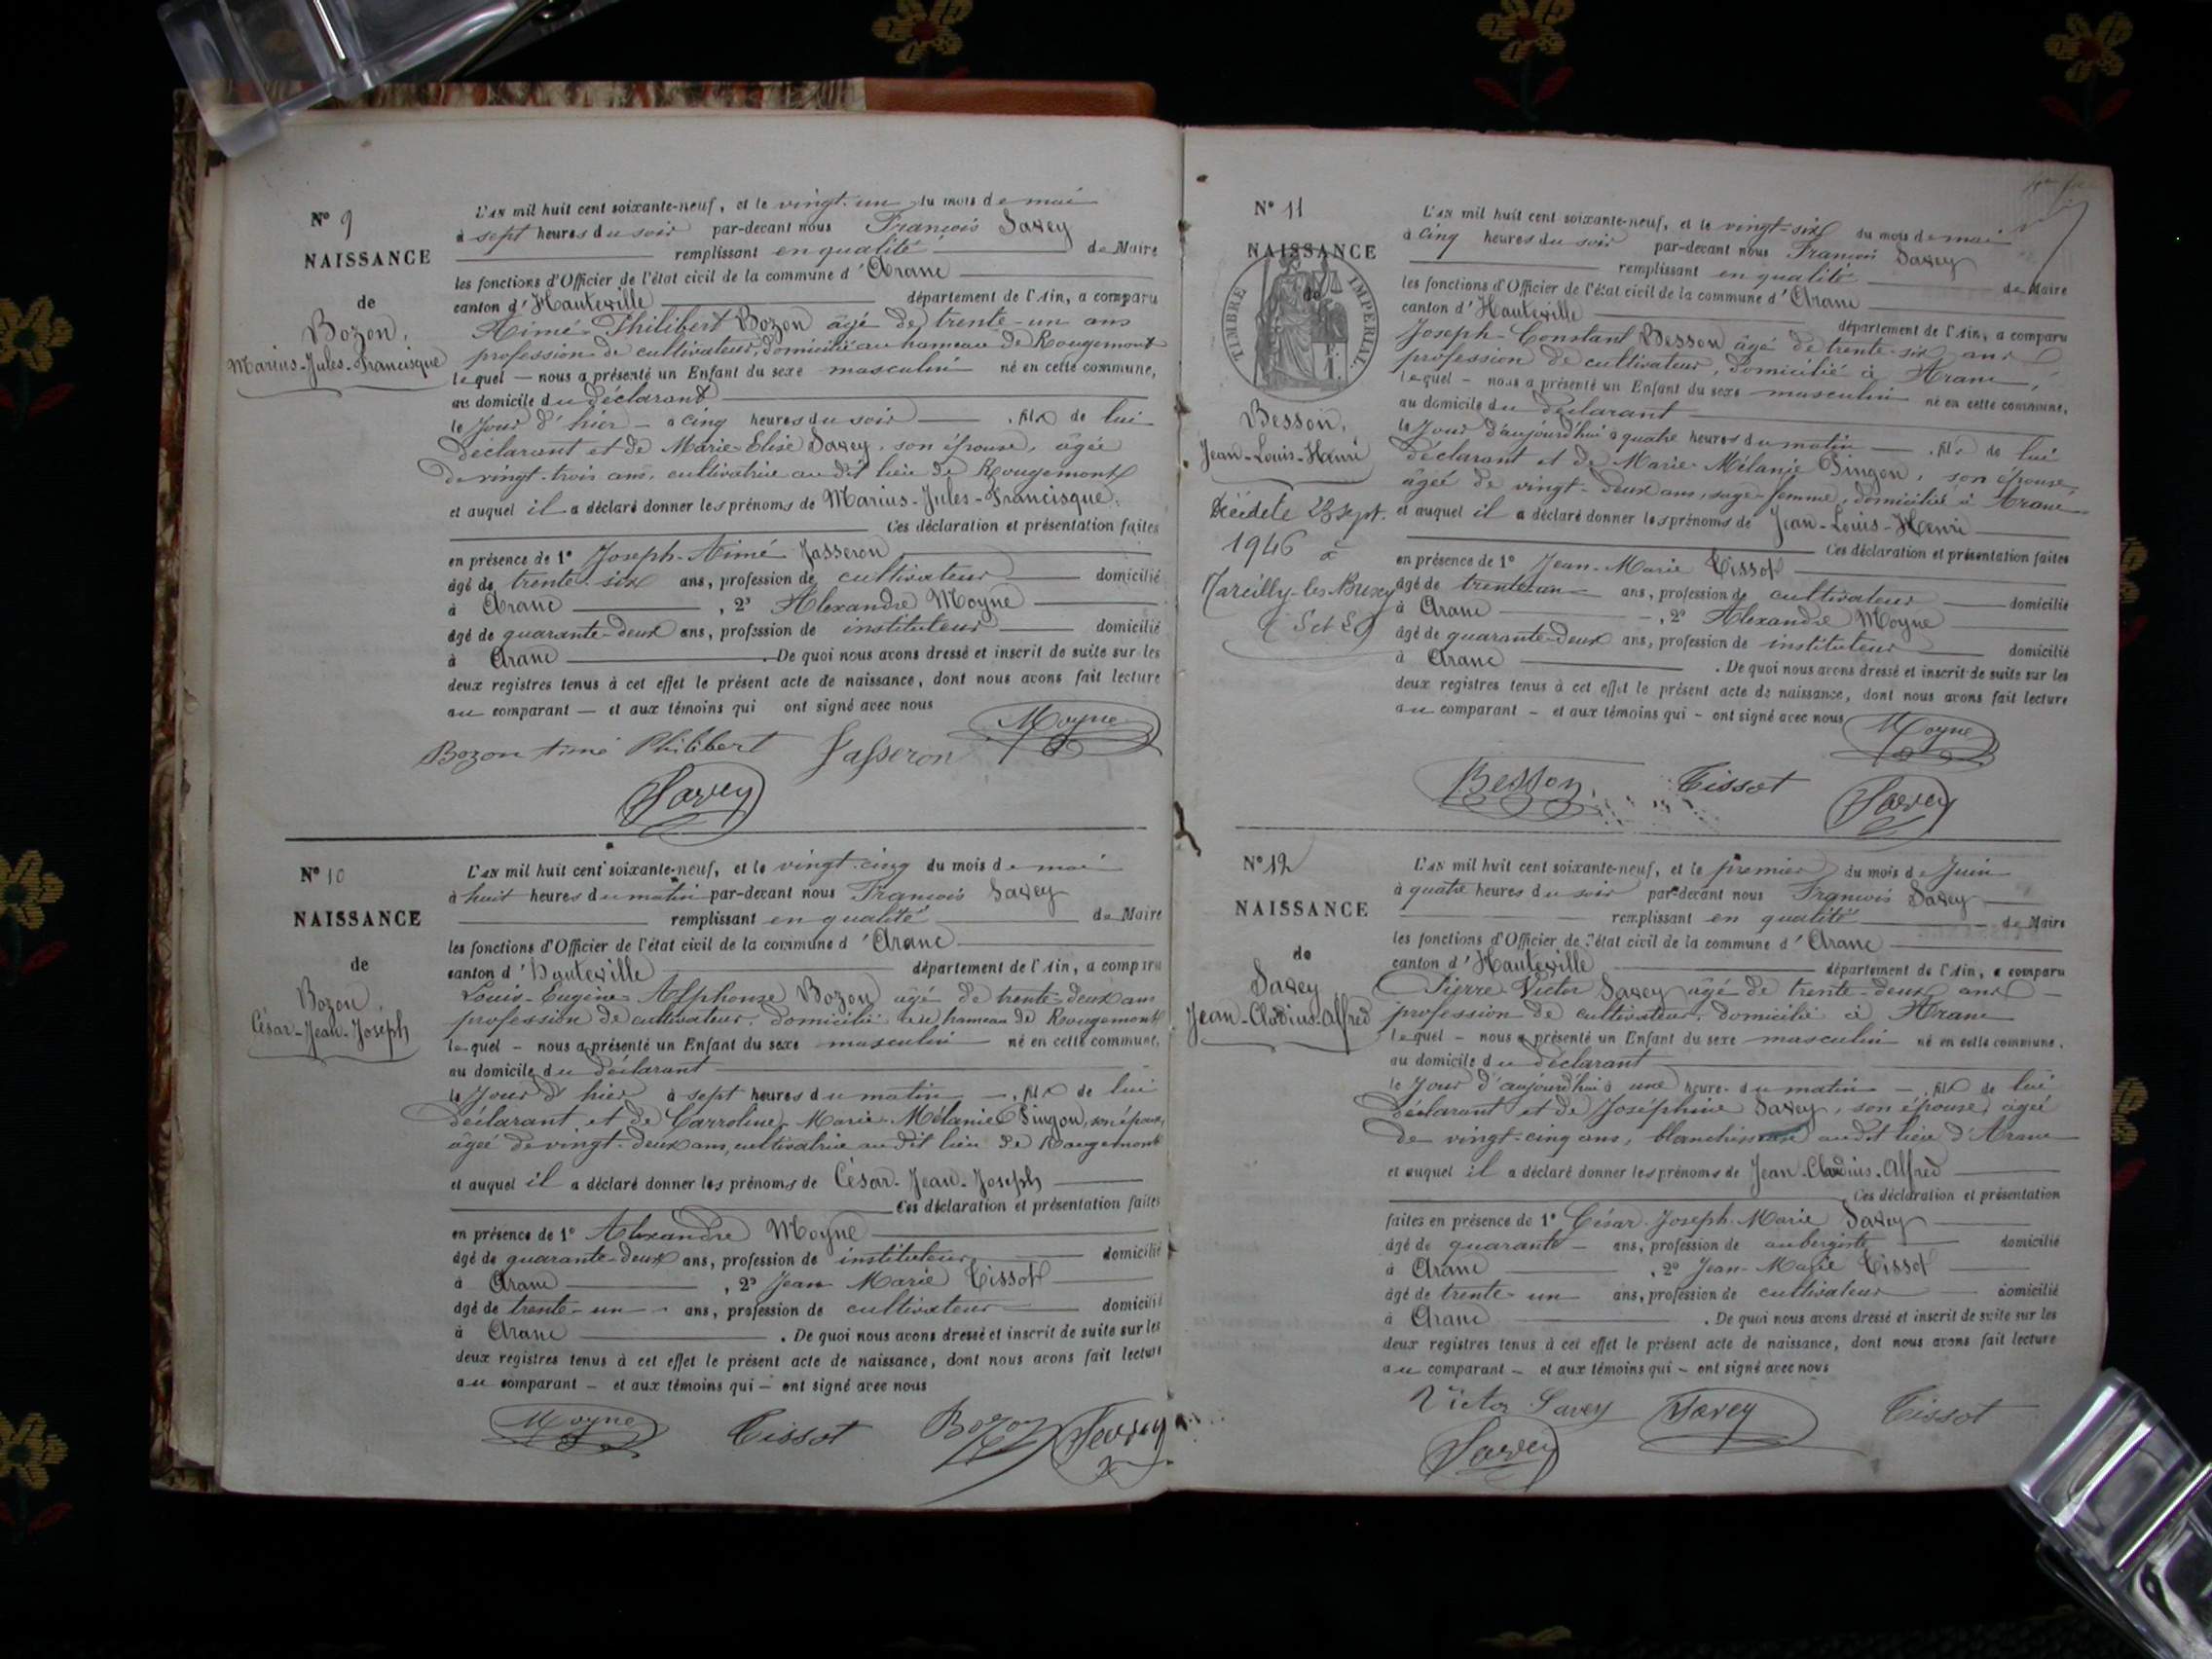 N° 9
NAISSANCE
de
Bozon,
Marius-Jules-Francisque
L'AN mil huit cent soixante-neuf, et le vingt-un du mois de mai
à sept heures du soir par-devant nous François Savey
remplissant en qualité de Maire
les fonctions d'Officier de l'état civil de la commune d'Aranc
canton d'Hauteville département de l'Ain, a comparu
Aimé-Philibert Bozon âgé de trente-un ans
profession de cultivateur, domicilié au hameau de Rougemont
lequel — nous a présenté un Enfant du sexe masculin né en cette commune,
au domicile du déclarant
le jour d'hier — à cinq heures du soir — , fils de lui
déclarant et de Marie-Elise Savey, son épouse, âgée
de vingt-trois ans, cultivatrice au dit lieu de Rougemont
et auquel il a déclaré donner les prénoms de Marius-Jules-Francisque.
Ces déclaration et présentation faites
en présence de 1° Joseph-Aimé Jasseron
âgé de trente-six ans, profession de cultivateur domicilié
à Aranc , 2° Alexandre Moyne
âgé de quarante-deux ans, profession de instituteur domicilié
à Aranc . De quoi nous avons dressé et inscrit de suite sur les
deux registres tenus à cet effet le présent acte de naissance, dont nous avons fait lecture
au comparant — et aux témoins qui ont signé avec nous
Moyne
Bozon Aimé Philibert Jasseron
Savey
N° 10
NAISSANCE
de
Bozon,
César-Jean-Joseph
L'AN mil huit cent soixante-neuf, et le vingt-cinq du mois de mai
à huit heures du matin par-devant nous François Savey
remplissant en qualité de Maire
les fonctions d'Officier de l'état civil de la commune d'Aranc
canton d'Hauteville département de l'Ain, a comparu
Louis-Eugène-Alphonse Bozon âgé de trente-deux ans
profession de cultivateur, domicilié au hameau de Rougemont
lequel — nous a présenté un Enfant du sexe masculin né en cette commune,
au domicile du déclarant
le jour d'hier à sept heures du matin — , fils de lui
déclarant et de Carroline-Marie-Mélanie Pingon, son épouse,
âgée de vingt-deux ans, cultivatrice au dit lieu de Rougemont
et auquel il a déclaré donner les prénoms de César-Jean-Joseph
Ces déclaration et présentation faites
en présence de 1° Alexandre Moyne
âgé de quarante-deux ans, profession de instituteur domicilié
à Aranc , 2° Jean Marie Tissot
âgé de trente-un ans, profession de cultivateur domicilié
à Aranc . De quoi nous avons dressé et inscrit de suite sur les
deux registres tenus à cet effet le présent acte de naissance, dont nous avons fait lecture
au comparant — et aux témoins qui — ont signé avec nous
Moyne Tissot Bozon Savey
N° 11
NAISSANCE
de
TIMBRE IMPERIAL
Besson,
Jean-Louis-Henri
Décédé le 23 Sept.
1946 à
Marcilly-les-Buxy
(S et L)
L'AN mil huit cent soixante-neuf, et le vingt-six du mois de mai
à cinq heures du soir par-devant nous François Savey
remplissant en qualité de Maire
les fonctions d'Officier de l'état civil de la commune d'Aranc
canton d'Hauteville département de l'Ain, a comparu
Joseph-Constant Besson âgé de trente-six ans
profession de cultivateur, domicilié à Aranc,
lequel — nous a présenté un Enfant du sexe masculin né en cette commune,
au domicile du déclarant
le jour d'aujourd'hui à quatre heures du matin — , fils de lui
déclarant et de Marie-Mélanie Pingon, son épouse,
âgée de vingt-deux ans, sage-femme, domiciliée à Aranc
et auquel il a déclaré donner les prénoms de Jean-Louis-Henri
Ces déclaration et présentation faites
en présence de 1° Jean-Marie Tissot
âgé de trente-un ans, profession de cultivateur domicilié
à Aranc , 2° Alexandre Moyne
âgé de quarante-deux ans, profession de instituteur domicilié
à Aranc . De quoi nous avons dressé et inscrit de suite sur les
deux registres tenus à cet effet le présent acte de naissance, dont nous avons fait lecture
au comparant — et aux témoins qui — ont signé avec nous
Moyne
Besson Tissot Savey
N° 12
NAISSANCE
de
Savey
Jean-Claudius-Alfred
L'AN mil huit cent soixante-neuf, et le premier du mois de juin
à quatre heures du soir par-devant nous François Savey
remplissant en qualité de Maire
les fonctions d'Officier de l'état civil de la commune d'Aranc
canton d'Hauteville département de l'Ain, a comparu
Pierre-Victor Savey âgé de trente-deux ans
profession de cultivateur, domicilié à Aranc
lequel — nous a présenté un Enfant du sexe masculin né en cette commune,
au domicile du déclarant
le jour d'aujourd'hui à une heure du matin — , fils de lui
déclarant et de Joséphine Savey, son épouse, âgée
de vingt-cinq ans, blanchisseuse au dit lieu d'Aranc
et auquel il a déclaré donner les prénoms de Jean-Claudius-Alfred
Ces déclaration et présentation
faites en présence de 1° César-Joseph-Marie Savey
âgé de quarante ans, profession de aubergiste domicilié
à Aranc , 2° Jean-Marie Tissot
âgé de trente-un ans, profession de cultivateur domicilié
à Aranc . De quoi nous avons dressé et inscrit de suite sur les
deux registres tenus à cet effet le présent acte de naissance, dont nous avons fait lecture
au comparant — et aux témoins qui — ont signé avec nous
Victor Savey Savey Tissot
Savey